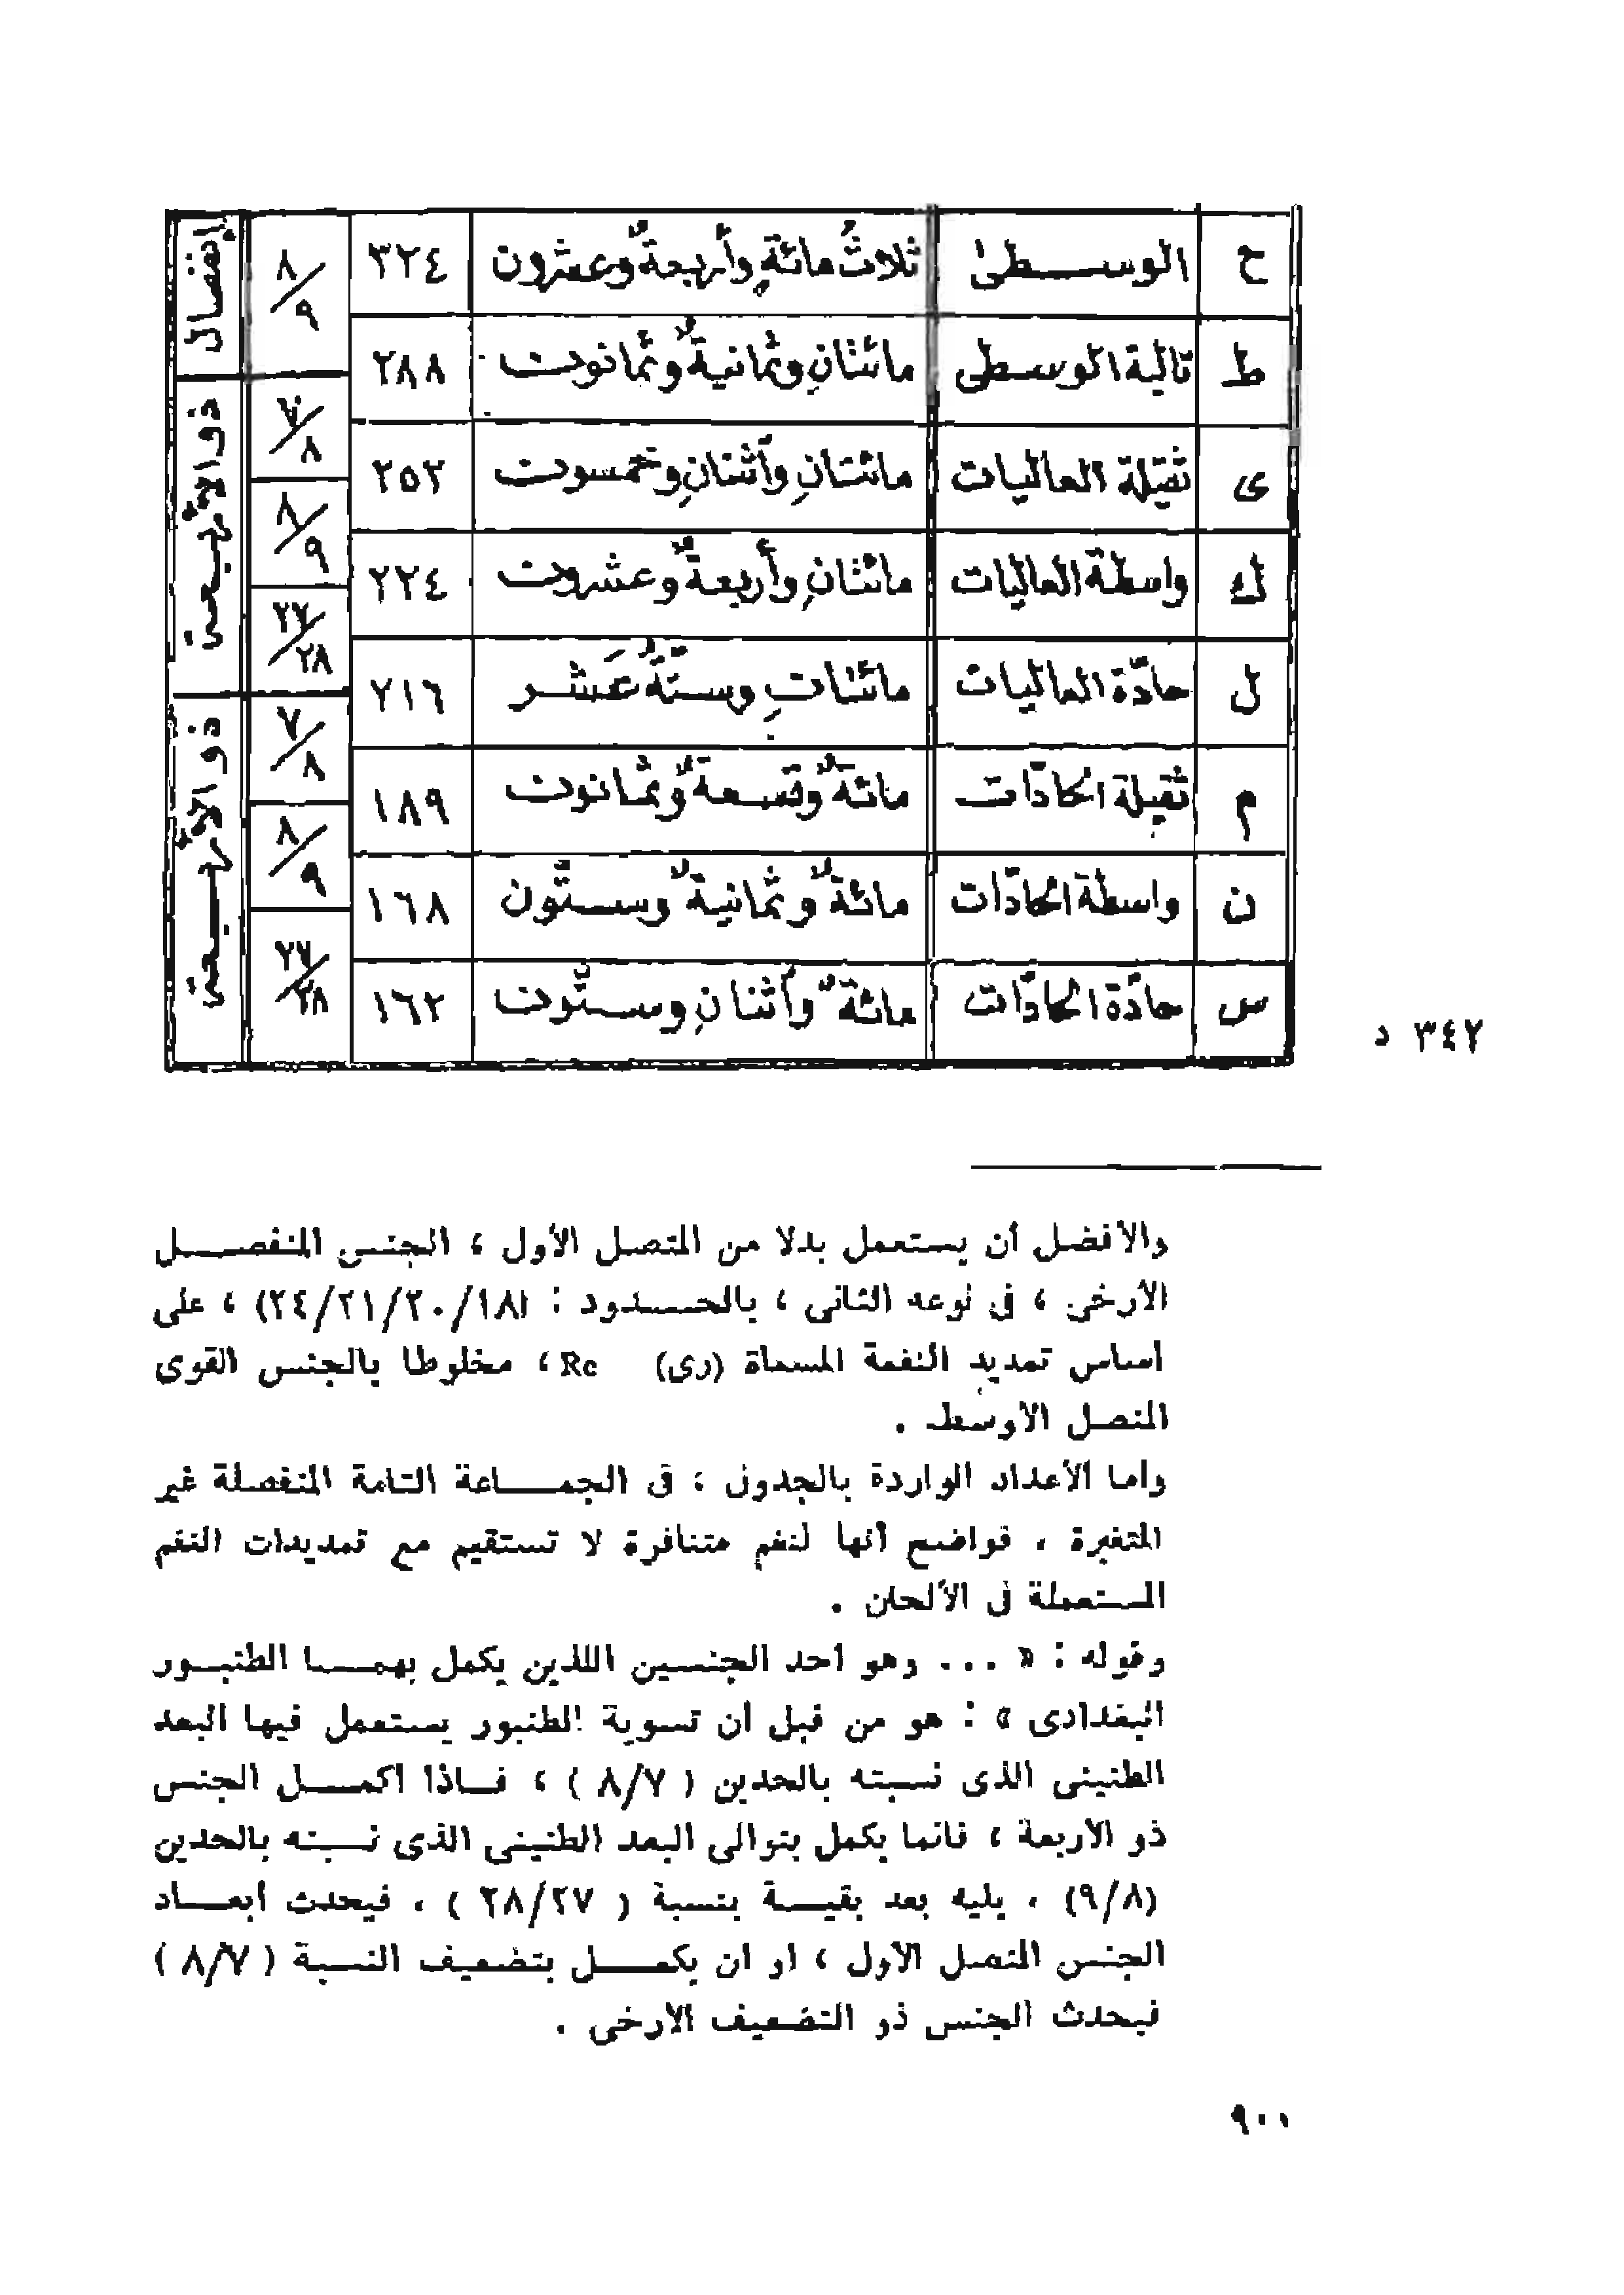 ح الوسطىٰ ثلاثُ مائةٍ وأربعةٌ وعشرون ٣٢٤ ٨/٩ إنفصال
ط تالية الوسطى مائتانِ وثمانيةٌ وثمانون ٢٨٨
ى ثقيلة العاليات مائتانِ وأثنانِ وخمسون ٢٥٢ ٧/٨ ذو الأربعة
ك واسطة العاليات مائتانِ وأربعةٌ وعشرون ٢٢٤ ٨/٩
ل حادّة العاليات مائتانِ وستّةَ عَشر ٢١٦ ٢٧/٢٨
م ثقيلة الحادّات مائةٌ وتسعةٌ وثمانون ١٨٩ ٧/٨ ذو الأربعة
ن واسطة الحادّات مائةٌ وثمانيةٌ وستّون ١٦٨ ٨/٩
س حادّة الحادّات مائةٌ وأثنانِ وستّون ١٦٢ ٢٧/٢٨
٣٤٢ د
والأفضل أن يستعمل بدلا من المتصل الأول ، الجنس المنفصل
الأرخى ، فى نوعه الثانى ، بالحدود : (٢٤/٢١/٢٠/١٨) ، على
أساس تمديد النغمة المسماة (رى) Re ، مخلوطا بالجنس القوى
المتصل الأوسط .
وأما الأعداد الواردة بالجدول ، فى الجماعة التامة المنفصلة غير
المتغيرة ، فواضح أنها لنغم متنافرة لا تستقيم مع تمديدات النغم
المستعملة فى الألحان .
وقوله : « ... وهو أحد الجنسين اللذين يكمل بهما الطنبور
البغدادى » : هو من قبل أن تسوية الطنبور يستعمل فيها البعد
الطنينى الذى نسبته بالحدين ( ٨/٧ ) ، فاذا أكمل الجنس
ذو الأربعة ، فانما يكمل بتوالى البعد الطنينى الذى نسبته بالحدين
(٩/٨) ، يليه بعد بقية بنسبة ( ٢٨/٢٧ ) ، فيحدث أبعاد
الجنس المتصل الأول ، أو أن يكمل بتضعيف النسبة ( ٨/٧ )
فيحدث الجنس ذو التضعيف الأرخى .
٩٠٠